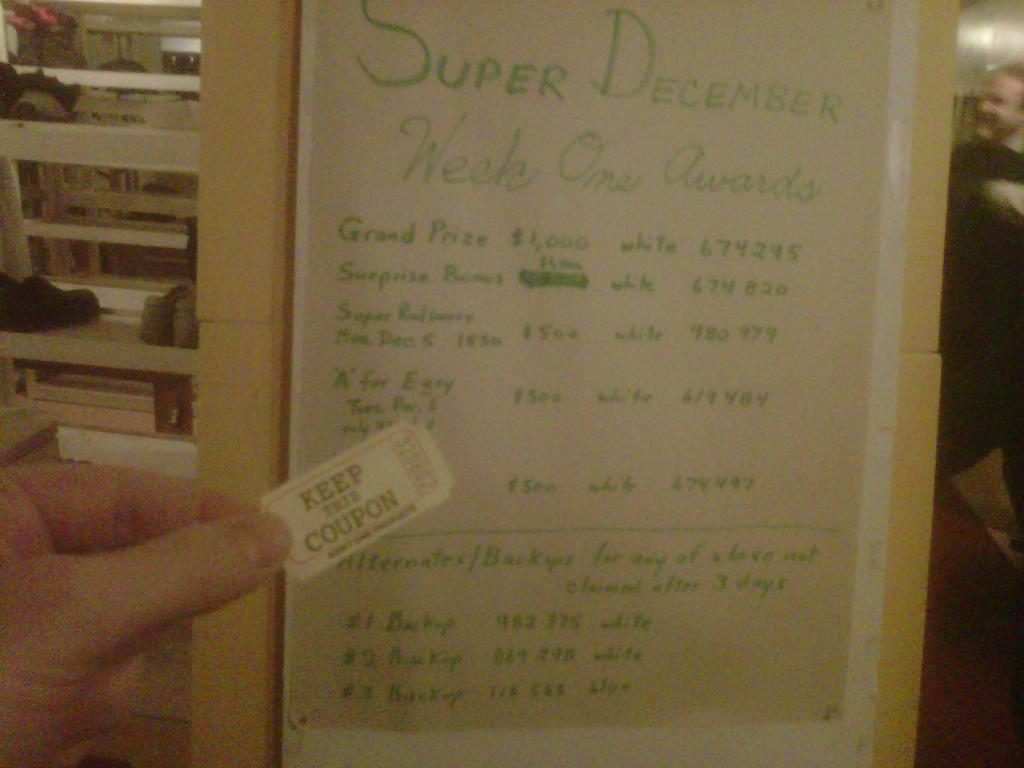 SUPER DECEMBER
Week One Awards
Grand Prize $1,000 white 674295
Surprise Bonus white 674820
Super
Mon. Dec. 5 1830 $500 white 980979
"A" for Easy $500 white 619484
Tues. Dec. 6
only
$500 white 674497
KEEP
THIS
COUPON
Alternates/Backups for any of above not
claimed after 3 days
#1 Backup 982375 white
#2 Backup 869298 white
#3 Backup